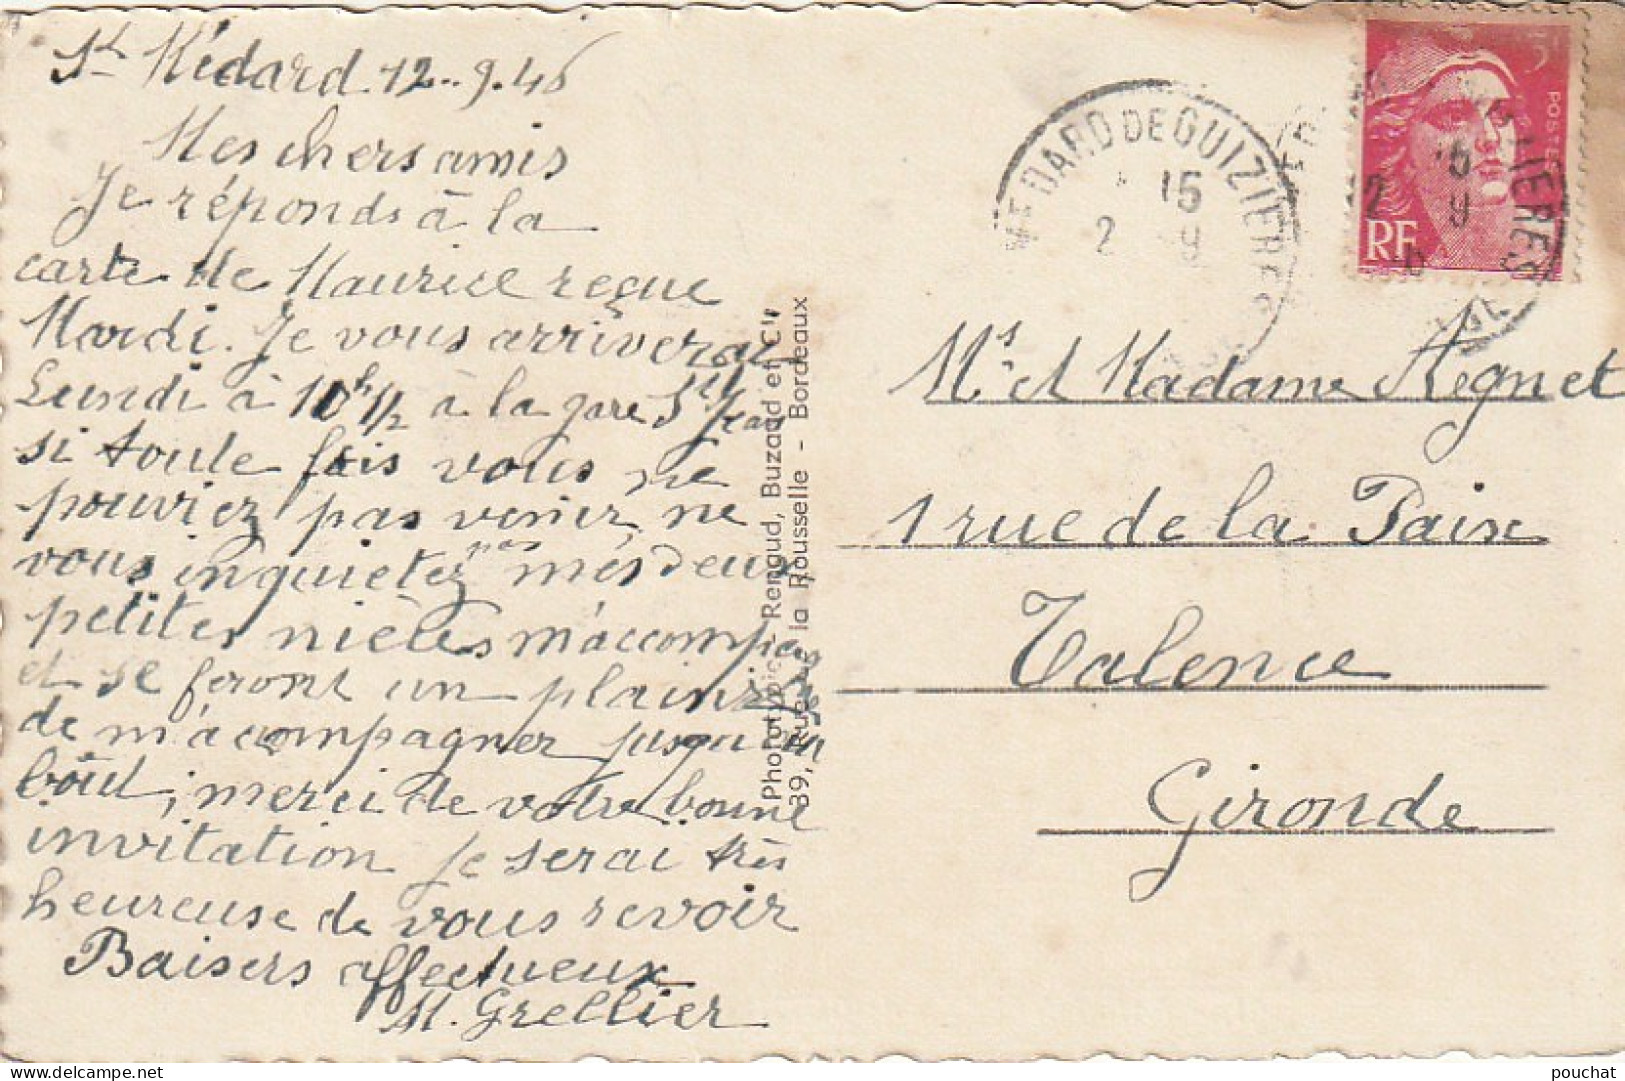 St Médard 12-9.46
Mes chers amis
Je réponds à la
carte de Maurice reçue
Mardi. Je vous arriverai
Lundi à 10h1/2 à la gare St Jean
si toute fois vous ne
pouviez pas venir, ne
vous inquietez pas mes deux
petites nièces m'accompag
et se feront un plaisir
de m'accompagner jusqu'au
bout, merci de votre bonne
invitation je serai très
heureuse de vous revoir
Baisers affectueux
M. Grellier
Phototypie Renaud, Buzaud et Cie
39, Rue de la Rousselle - Bordeaux
MEDARD DE GUIZIERES
15
2 9
RF
POSTES
15
2 9
IERES
Mrs et Madame Regnet
1 rue de la Paix
Talence
Gironde
pouchat
delcampe.net